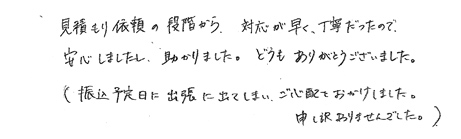 見積もり依頼の段階から、対応が早く、丁寧だったので、
安心しましたし、助かりました。どうもありがとうございました。
(振込予定日に出張に出てしまい、ご心配をおかけしました。
申し訳ありませんでした。)